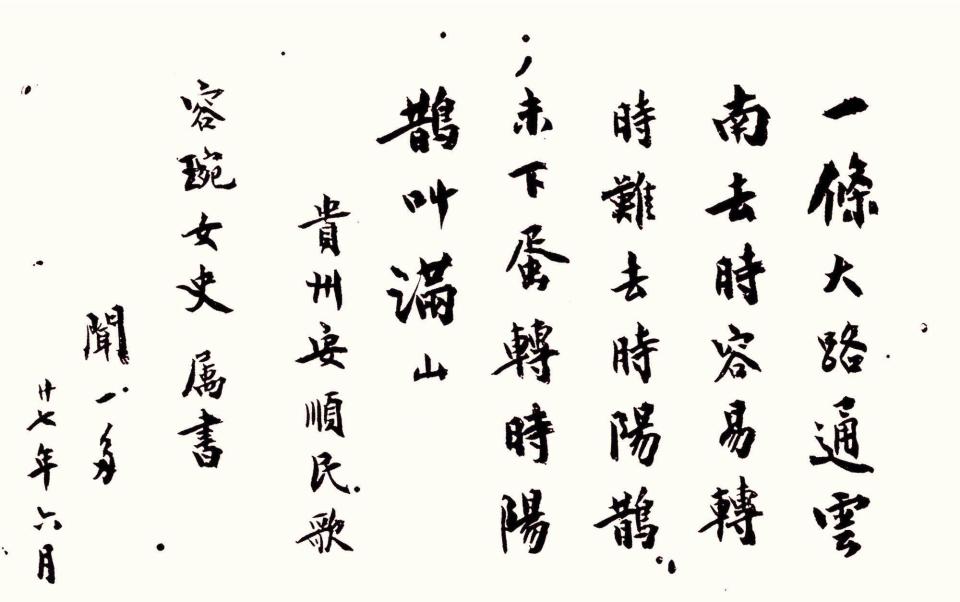 一條大路通雲
南去時容易轉
時難去時陽鵲
未下蛋轉時陽
鵲叫滿山
貴州安順民歌
容琬女史 属書
聞一多
廿七年六月